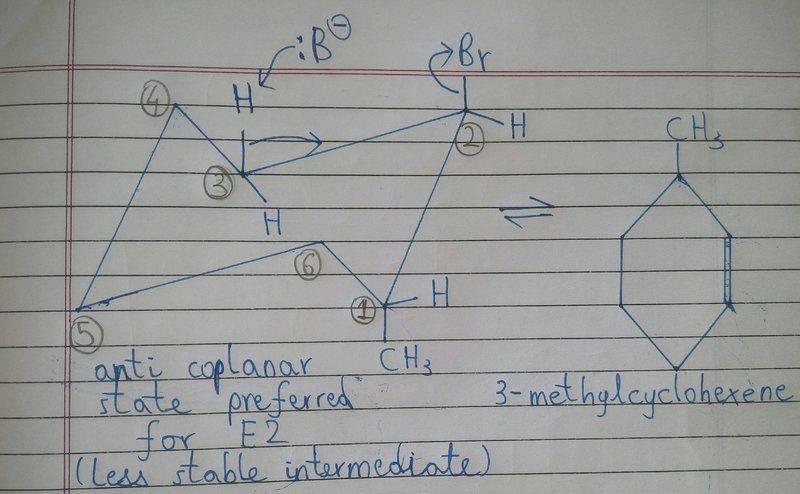 :B⊖
H
Br
④
H
②
③
H
CH₃
⑥
①
H
⑤
CH₃
anti coplanar
state preferred
for E2
(less stable intermediate)
3-methylcyclohexene